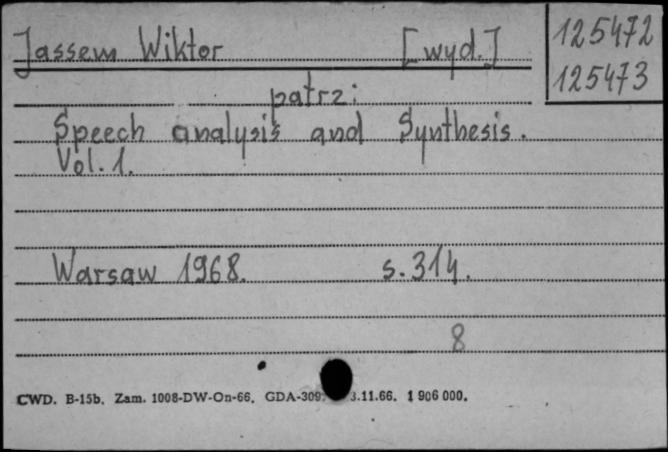 Jassem Wiktor [wyd.]
125472
125473
patrz:
Speech analysis and Synthesis.
Vol. 1.
Warsaw 1968. s. 314.
8
CWD. B-15b. Zam. 1008-DW-On-66. GDA-309 3.11.66. 1 906 000.